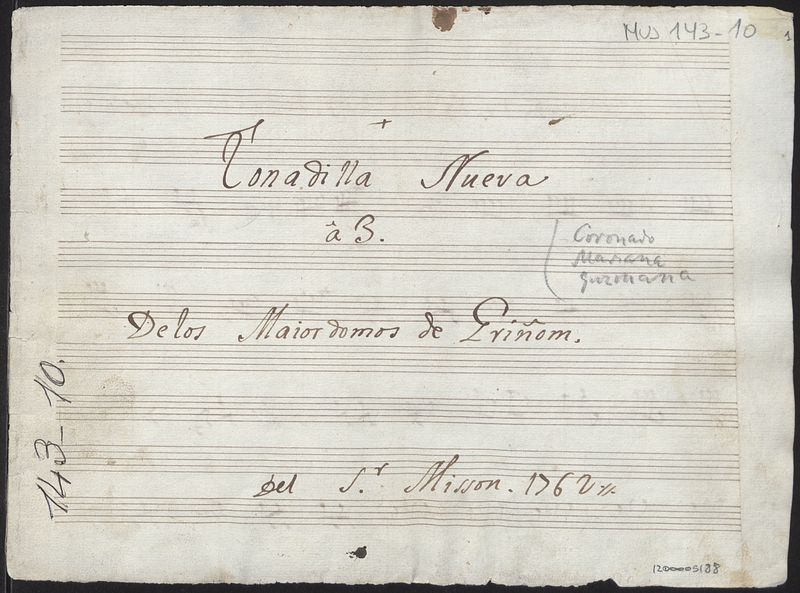 MUS 143-10
1
Tonadilla Nueva
â 3.
Coronado
Mariana
Guzmana
Delos Maiordomos de Griñom.
143-10.
Del S.r Misson. 1762
1200005188